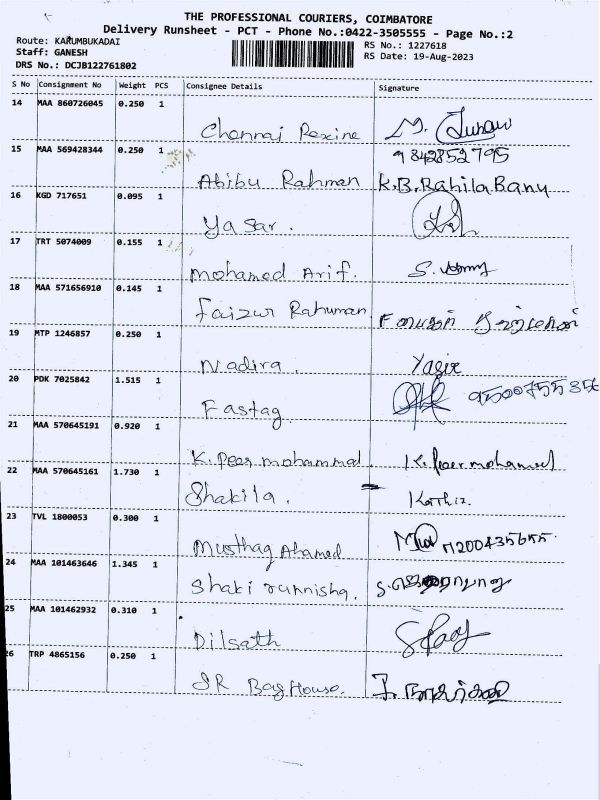 THE PROFESSIONAL COURIERS, COIMBATORE
Delivery Runsheet - PCT - Phone No.:0422-3505555 - Page No.:2
Route: KARUMBUKADAI
Staff: GANESH
DRS No.: DCJB122761802
RS No.: 1227618
RS Date: 19-Aug-2023
S No Consignment No Weight PCS Consignee Details Signature
14 MAA 860726045 0.250 1
Chennai Rexine M.
15 MAA 569428344 0.250 1 9842852795
Abibu Rahman K.B.Rahila Banu
16 KGD 717651 0.095 1
Yasar.
17 TRT 5074009 0.155 1
Mohamed Arif. S.
18 MAA 571656910 0.145 1
Faizur Rahuman
19 MTP 1246857 0.250 1
Nadira. Yasir
20 PDK 7025842 1.515 1 9500755356
Fastag
21 MAA 570645191 0.920 1
K.Peer mohammad. K.Peer mohamed
22 MAA 570645161 1.730 1
Shakila.
23 TVL 1800053 0.300 1
Musthag Ahamed 7200435655
24 MAA 101463646 1.345 1
Shaki runnisha.
25 MAA 101462932 0.310 1
Dilsath
26 TRP 4865156 0.250 1
JR Bag House.